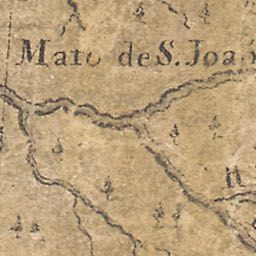 Mato de S. Joaõ
H